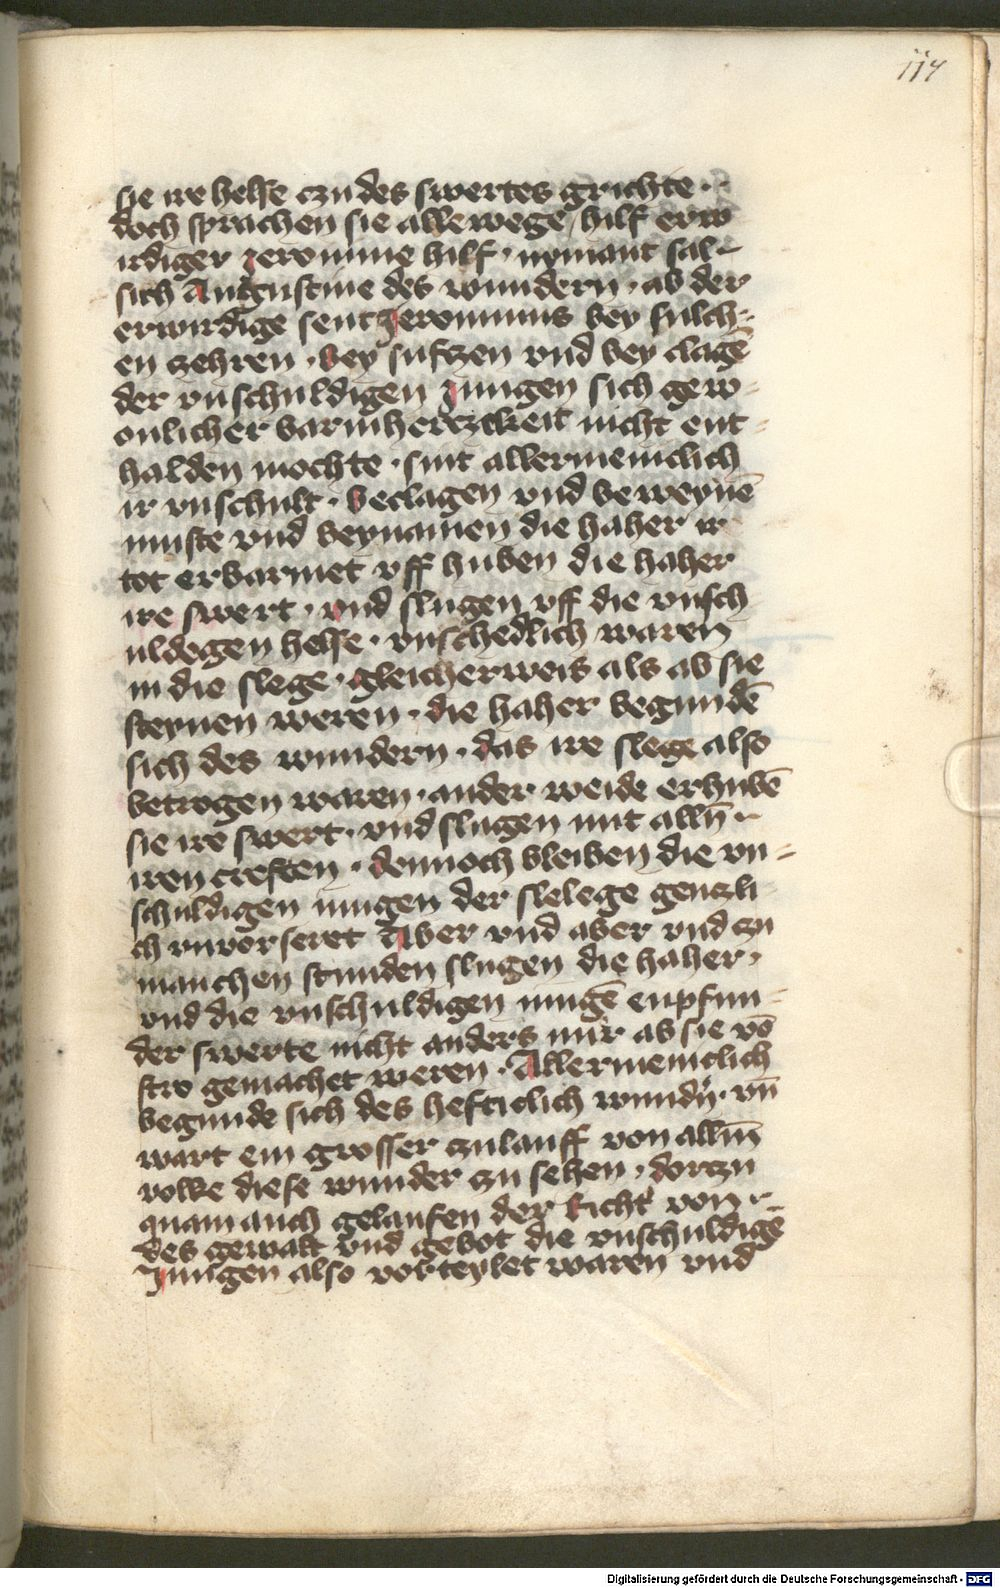 114
sie ire helse czu des swertes grichte ·
doch sprachen sie allewege / hilf erw
irdiger Jeronime hilf · nymant sal
sich Augustine des wundern · ab der
erwirdige sent Jeronimus bey sulch-
en zehren · bey sufczen vnd bey clagē
der vnschuldigen Jungen sich gew-
onlicher barmherczikeit nicht ent-
halden mochte · sint allermeniclich
ir vnschult · beclagen vnd beweynē
muste vnd beynamen die haher ir
tot erbarmet vff huben die haher
ire swert · vnd slugen vff die vnsch
uldegen helse · vnschedlich waren
in die slege · gleicherweis als ab sie
steynen weren · die haher begundē
sich des wundern · das ire slege also
betrogen waren · ander weide erhubē
sie ire swert · vnd slugen mit alln̄
iren creften · dennoch bleiben die vn-
schuldigen iungen der slelege genczli-
ch vnvorseret Aber vnd aber vnd zu
manchen stunden slugen die haher ·
vnd die vnschuldigen iungē enpfun-
der swerte nicht anders nur ab sie vō
stro gemachet weren · Allermeniclich
begunde sich des hefticlich wundn̄ · vn̄
wart ein grosser zulauff von allm̄
volke diese wunder zu sehen · dorczu
quam auch gelaufen der Richt' von
des gewalt vnd gebot die vnschuldigē
Jungen also vorteylet waren vnd
Digitalisierung gefördert durch die Deutsche Forschungsgemeinschaft - DFG